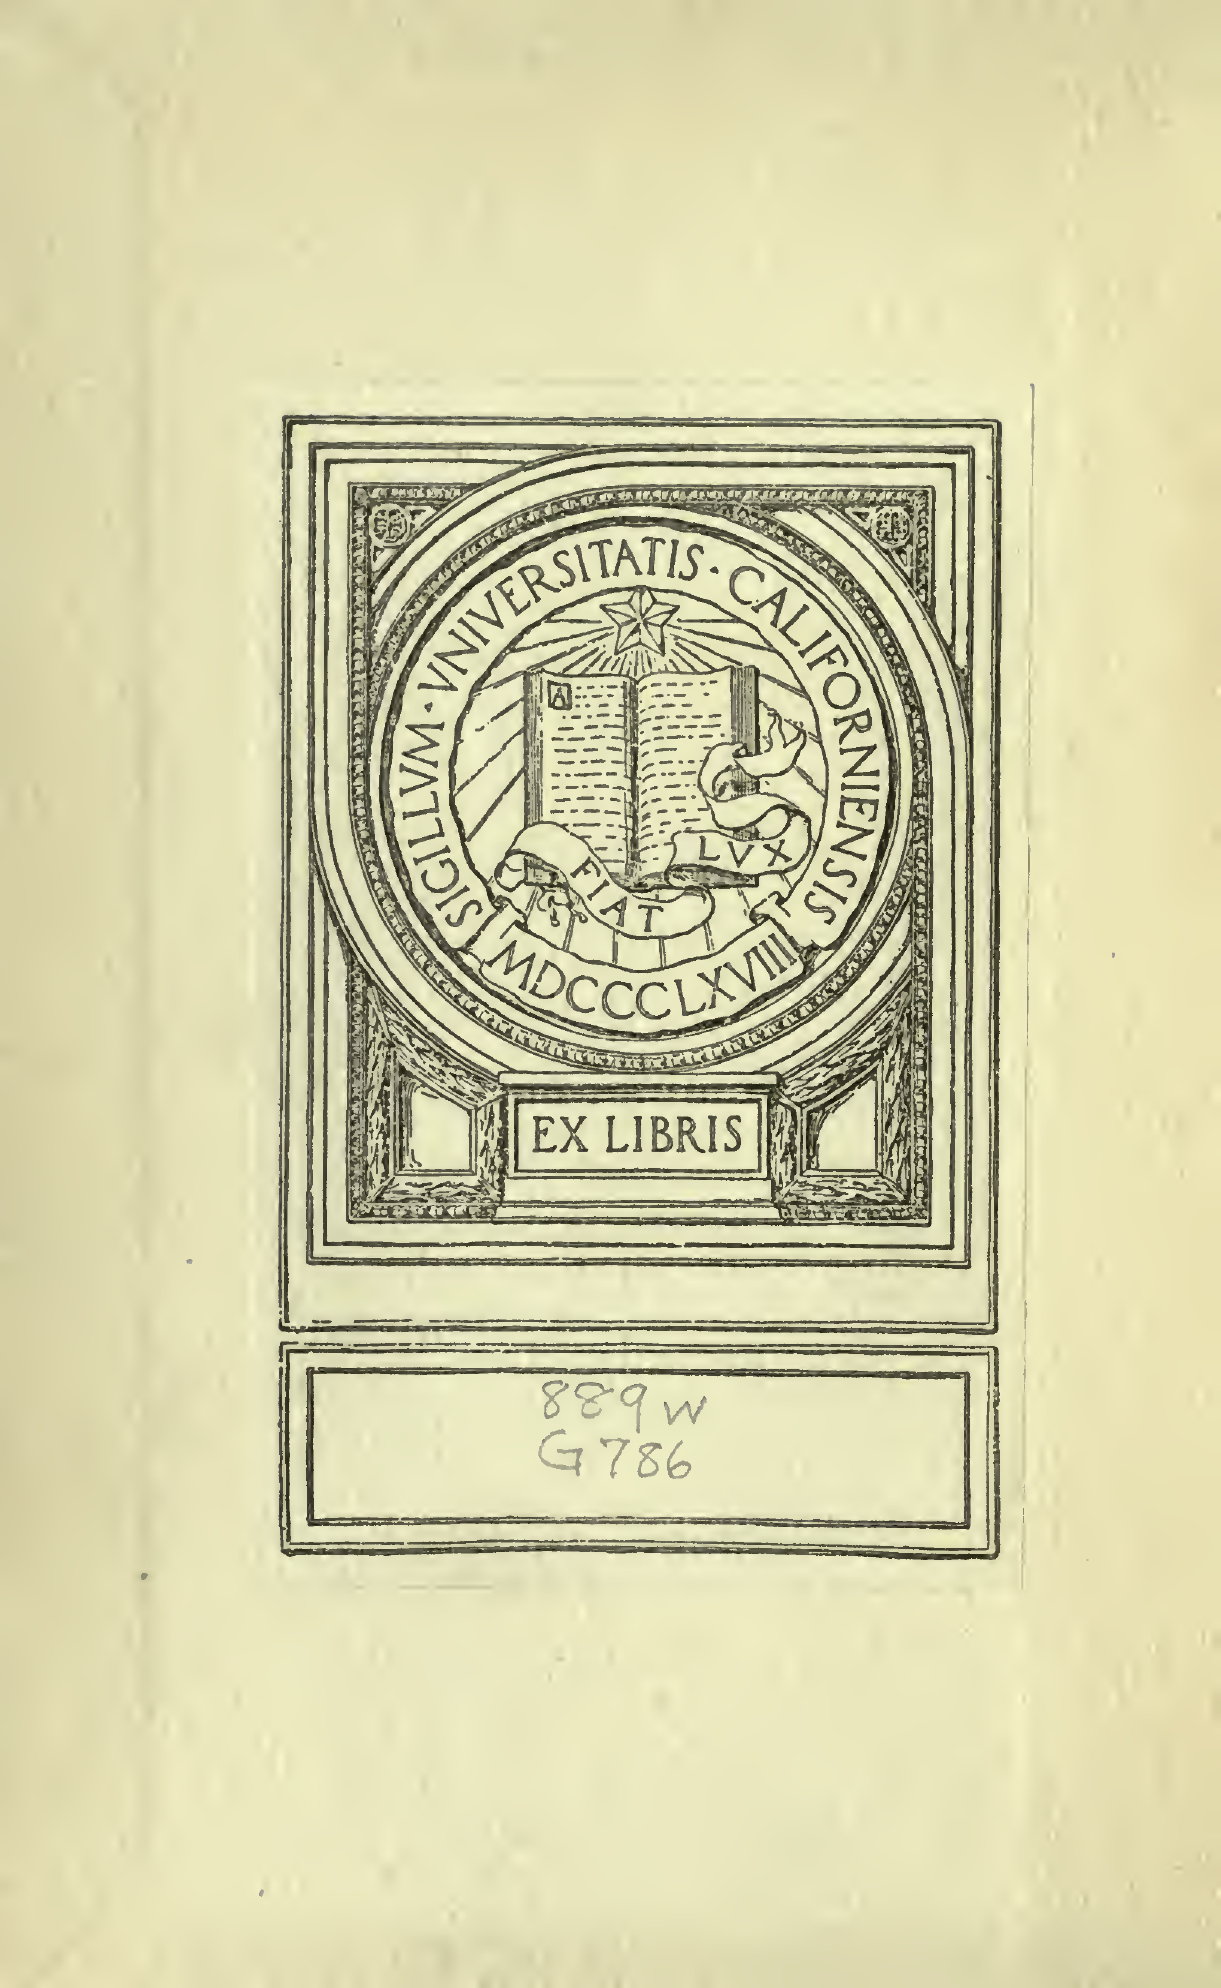 SIGILLVM · VNIVERSITATIS · CALIFORNIENSIS
A
FIAT LVX
MDCCCLXVIII
EX LIBRIS
889w
G786